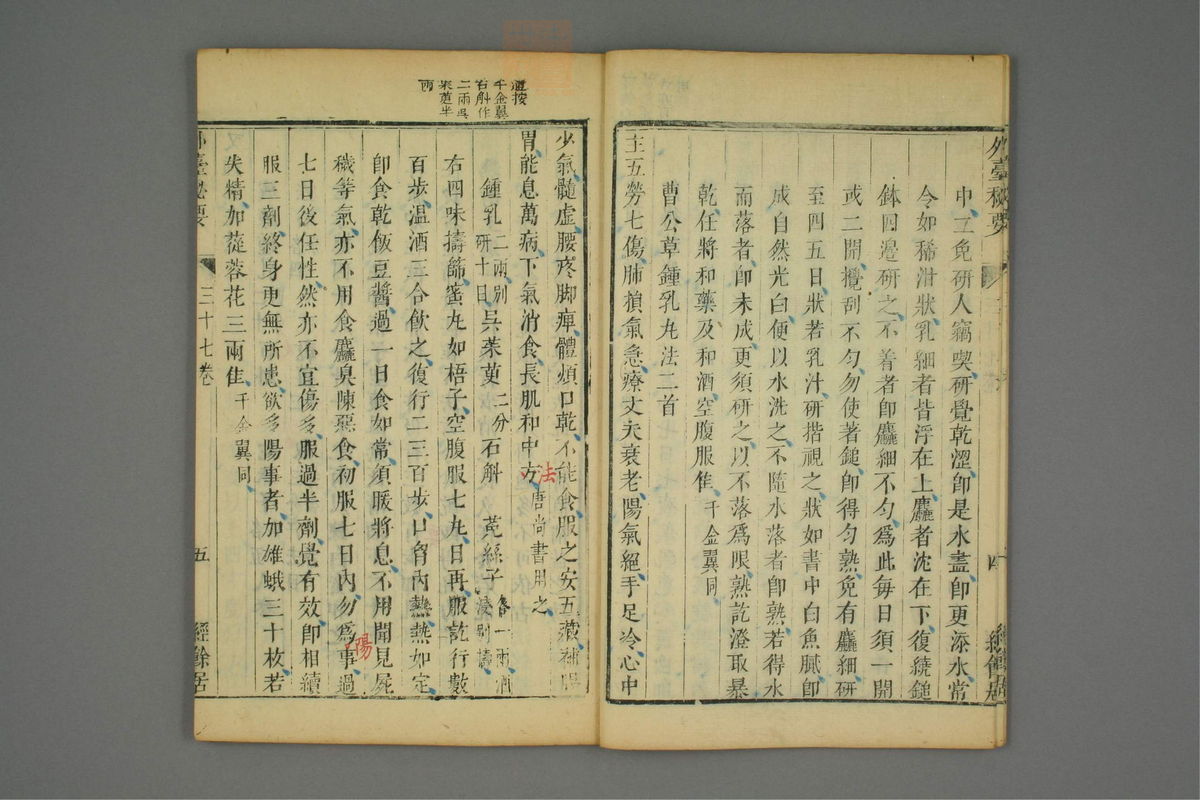 外臺秘要
中工免研人竊喫研覺乾澀即是水盡即更添水常
令如稀泔狀乳細者皆浮在上麤者沈在下復繞鎚
鉢四邊研之不着者即麤細不勻爲此每日須一開
或二開攪刮不勻勿使著鎚即得勻熟免有麤細研
至四五日狀若乳汁研揩視之狀如書中白魚膩即
成自然光白便以水洗之不隨水落者即熟若得水
而落者即未成更須研之以不落爲限熟訖澄取暴
乾任將和藥及和酒空腹服隹千金翼同
曹公草鍾乳丸法二首
主五勞七傷肺損氣急療丈夫衰老陽氣絕手足冷心中
少氣髓虛腰疼脚痺體煩口乾不能食服之安五藏補腸
胃能息萬病下氣消食長肌和中方法唐尚書用之
鍾乳二兩別研十日吳茱萸二分石斛菟絲子各一兩酒浸別擣
右四味擣篩蜜丸如梧子空腹服七丸日再服訖行數
百步温酒三合飲之復行二三百步口胷內熱熱如定
即食乾飯豆醬過一日食如常須暖將息不用聞見屍
穢等氣亦不用食麤臭陳惡食初服七日內勿爲陽事過
七日後任性然亦不宜傷多服過半劑覺有效即相續
服三劑終身更無所患欲多陽事者加雄蛾三十枚若
失精加蓯蓉花三兩隹千金翼同
外臺秘要 三十七卷 五 經餘居
按
千金翼
石斛作
二兩吳
茱萸半
兩